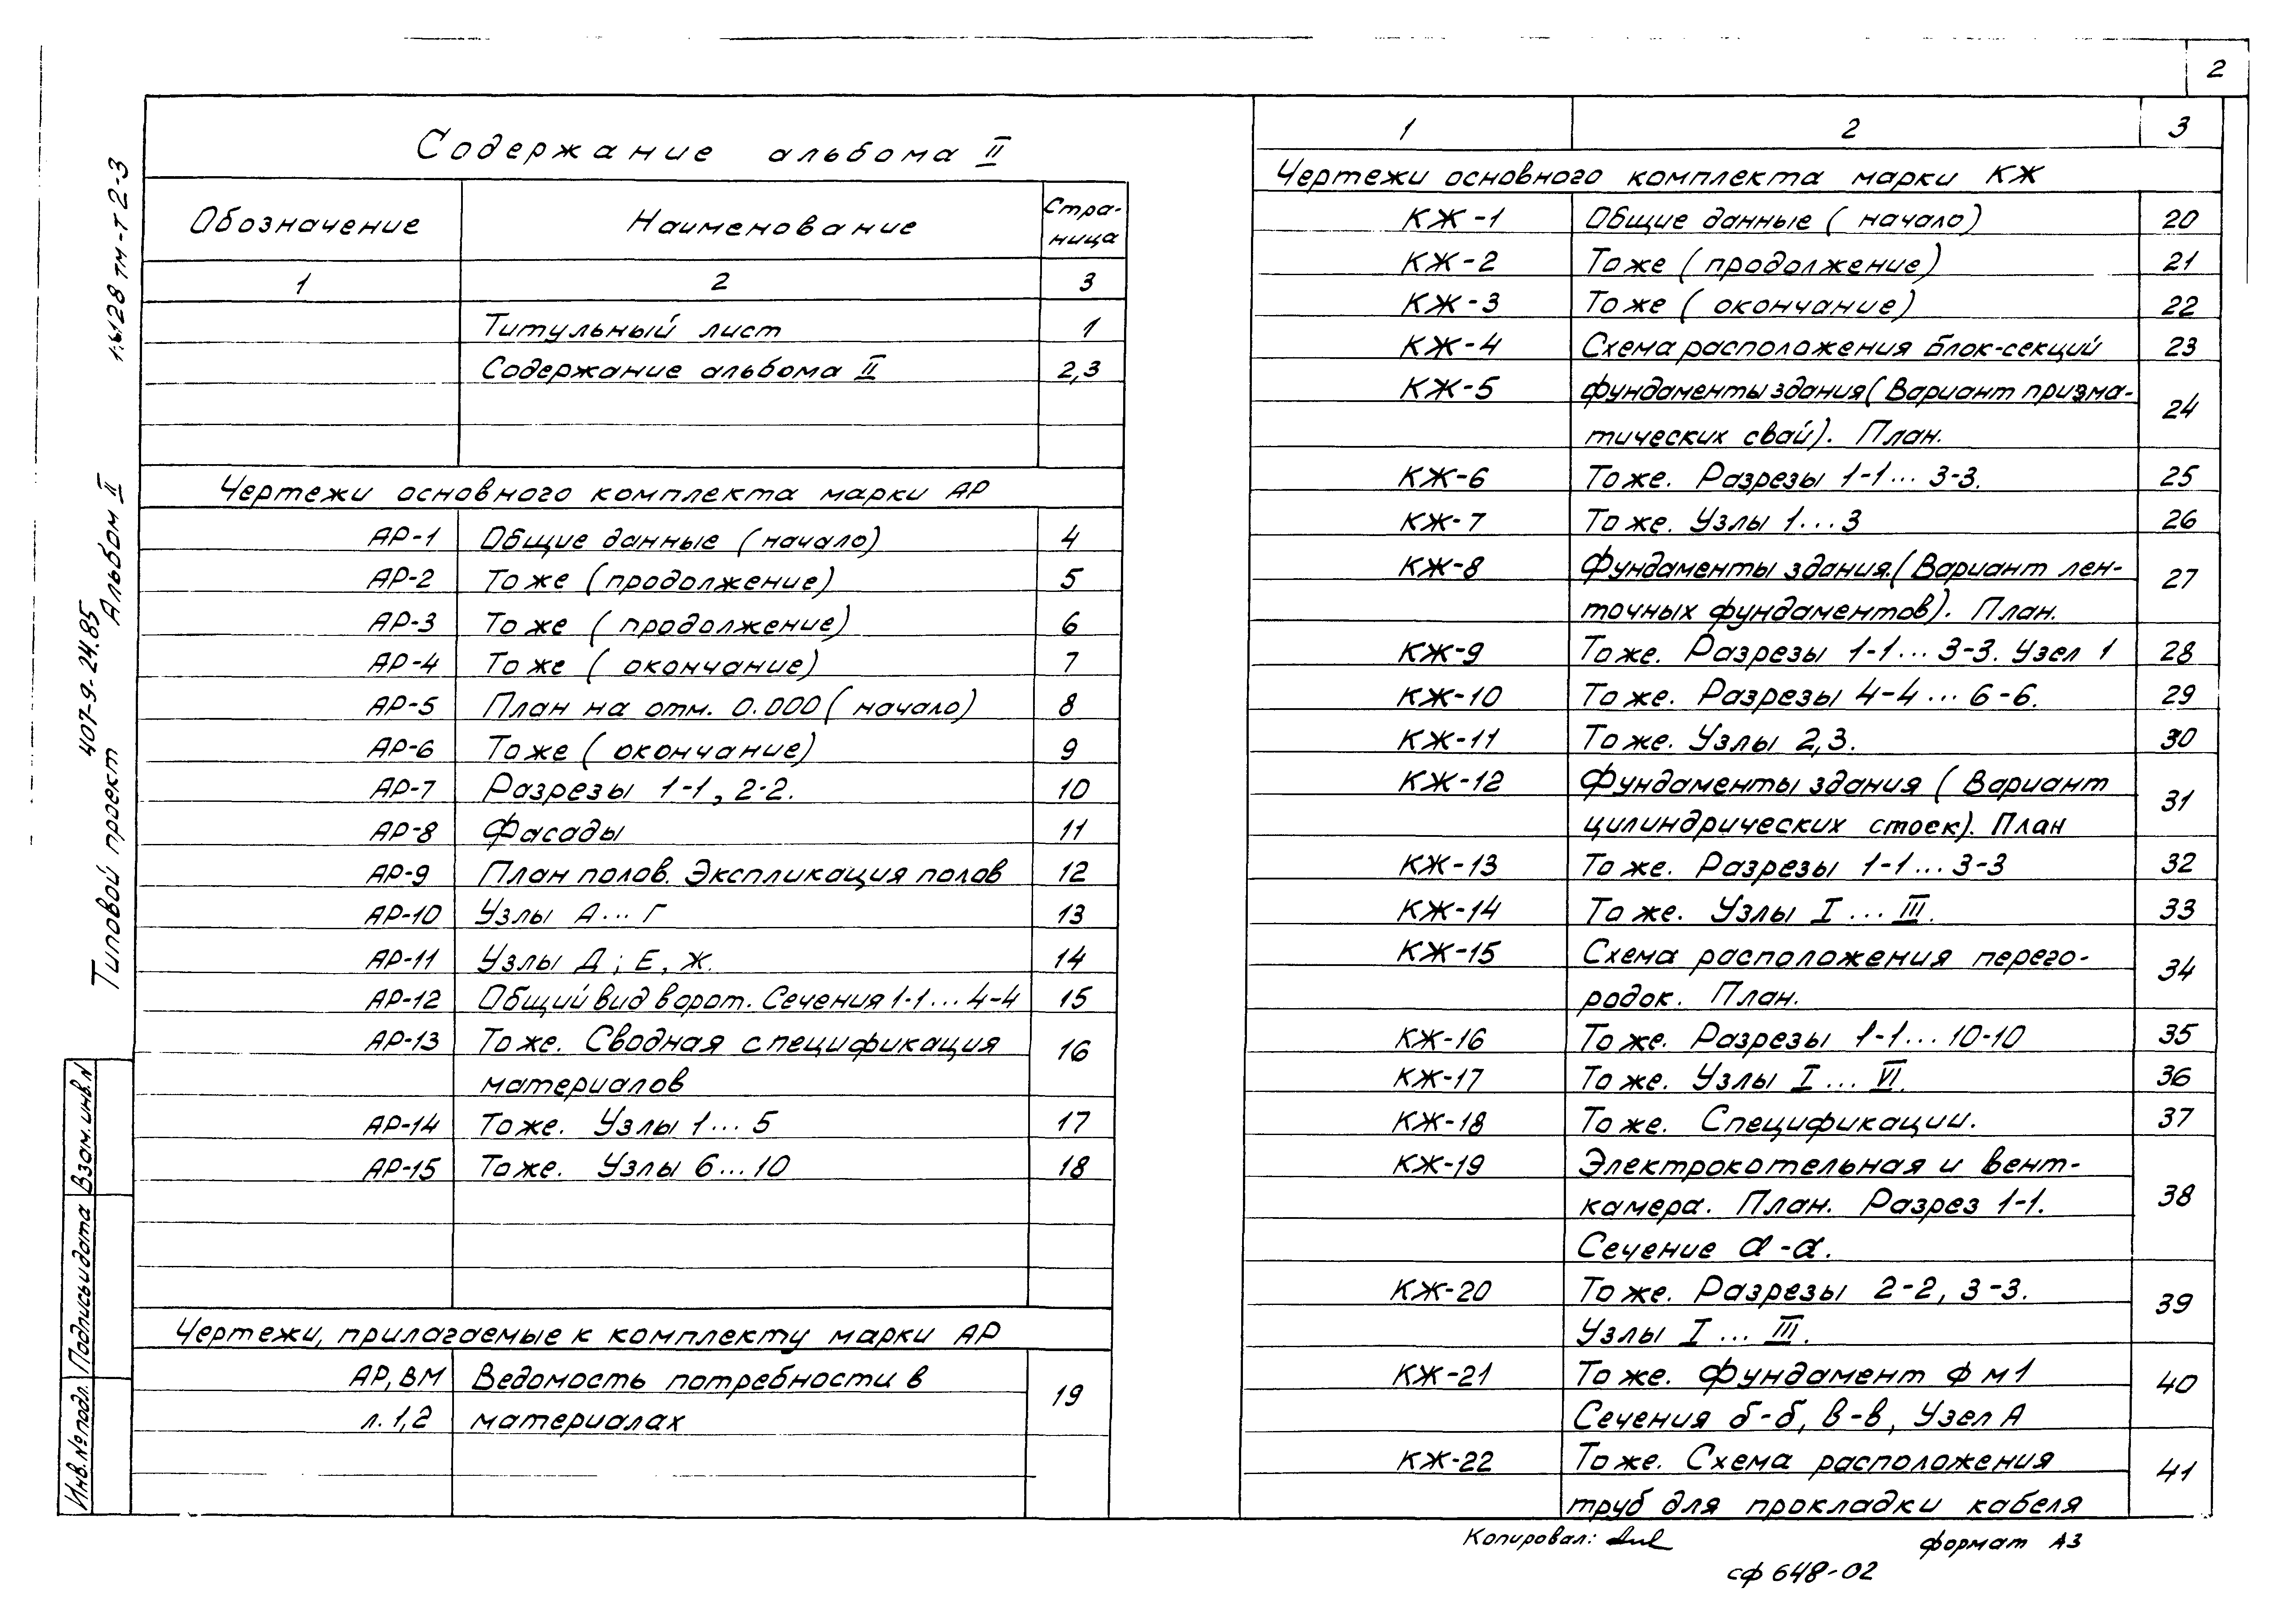 2
Содержание альбома II
Обозначение Наименование Стра-
ница
1 2 3
Титульный лист 1
Содержание альбома II 2,3
Чертежи основного комплекта марки АР
АР-1 Общие данные (начало) 4
АР-2 То же (продолжение) 5
АР-3 То же (продолжение) 6
АР-4 То же (окончание) 7
АР-5 План на отм. 0.000 (начало) 8
АР-6 То же (окончание) 9
АР-7 Разрезы 1-1, 2-2. 10
АР-8 Фасады 11
АР-9 План полов. Экспликация полов 12
АР-10 Узлы А...Г 13
АР-11 Узлы Д; Е, Ж. 14
АР-12 Общий вид ворот. Сечения 1-1...4-4 15
АР-13 То же. Сводная спецификация 16
материалов
АР-14 То же. Узлы 1...5 17
АР-15 То же. Узлы 6...10 18
Чертежи, прилагаемые к комплекту марки АР
АР, ВМ Ведомость потребности в 19
л. 1,2 материалах
1 2 3
Чертежи основного комплекта марки КЖ
КЖ-1 Общие данные (начало) 20
КЖ-2 То же (продолжение) 21
КЖ-3 То же (окончание) 22
КЖ-4 Схема расположения блок-секций 23
КЖ-5 Фундаменты здания (Вариант призма- 24
тических свай). План.
КЖ-6 То же. Разрезы 1-1...3-3. 25
КЖ-7 То же. Узлы 1...3 26
КЖ-8 Фундаменты здания. (Вариант лен- 27
точных фундаментов). План.
КЖ-9 То же. Разрезы 1-1...3-3. Узел 1 28
КЖ-10 То же. Разрезы 4-4...6-6. 29
КЖ-11 То же. Узлы 2,3. 30
КЖ-12 Фундаменты здания (Вариант 31
цилиндрических стоек). План
КЖ-13 То же. Разрезы 1-1...3-3 32
КЖ-14 То же. Узлы I...III. 33
КЖ-15 Схема расположения перего- 34
родок. План.
КЖ-16 То же. Разрезы 1-1...10-10 35
КЖ-17 То же. Узлы I...VI. 36
КЖ-18 То же. Спецификации. 37
КЖ-19 Электрокотельная и вент- 38
камера. План. Разрез 1-1.
Сечение а-а.
КЖ-20 То же. Разрезы 2-2, 3-3. 39
Узлы I...III.
КЖ-21 То же. Фундамент Фм1 40
Сечения б-б, в-в, Узел А
КЖ-22 То же. Схема расположения 41
труб для прокладки кабеля
Копировал: формат А3
сф 648-02
Типовой проект 407-9-24.85 Альбом II
128 тм-т2-3
Инв.№ подл. Подпись и дата Взам.инв.N